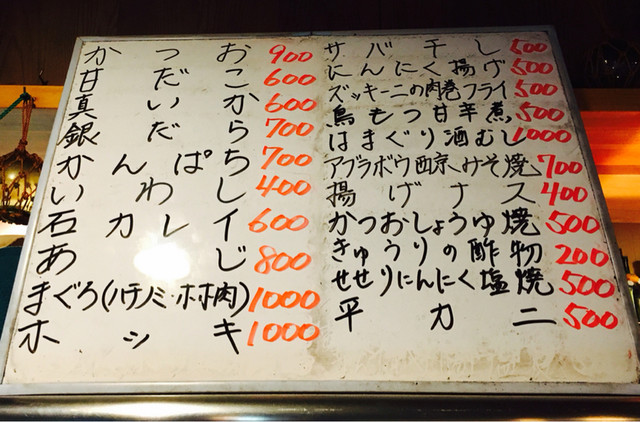 かつお 900
甘だこ 600
真いか 600
銀だら 700
かんぱち 700
いわし 400
石カレイ 600
あじ 800
まぐろ(ハチノミ・ホホ肉) 1000
ホシキ 1000
サバ干し 500
にんにく揚げ 500
ズッキーニの肉巻フライ 500
鳥もつ甘辛煮 500
はまぐり酒むし 1000
アブラボウ西京みそ焼 700
揚げナス 400
かつおしょうゆ焼 500
きゅうりの酢物 200
せせりにんにく塩焼 500
平カニ 500